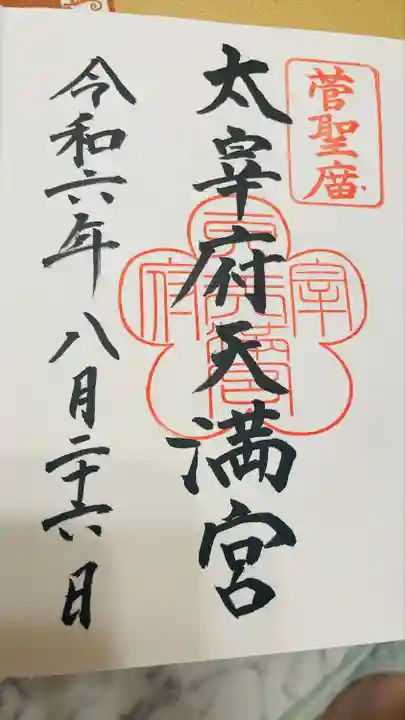 菅聖廟
太宰府天満宮
令和六年八月二十六日